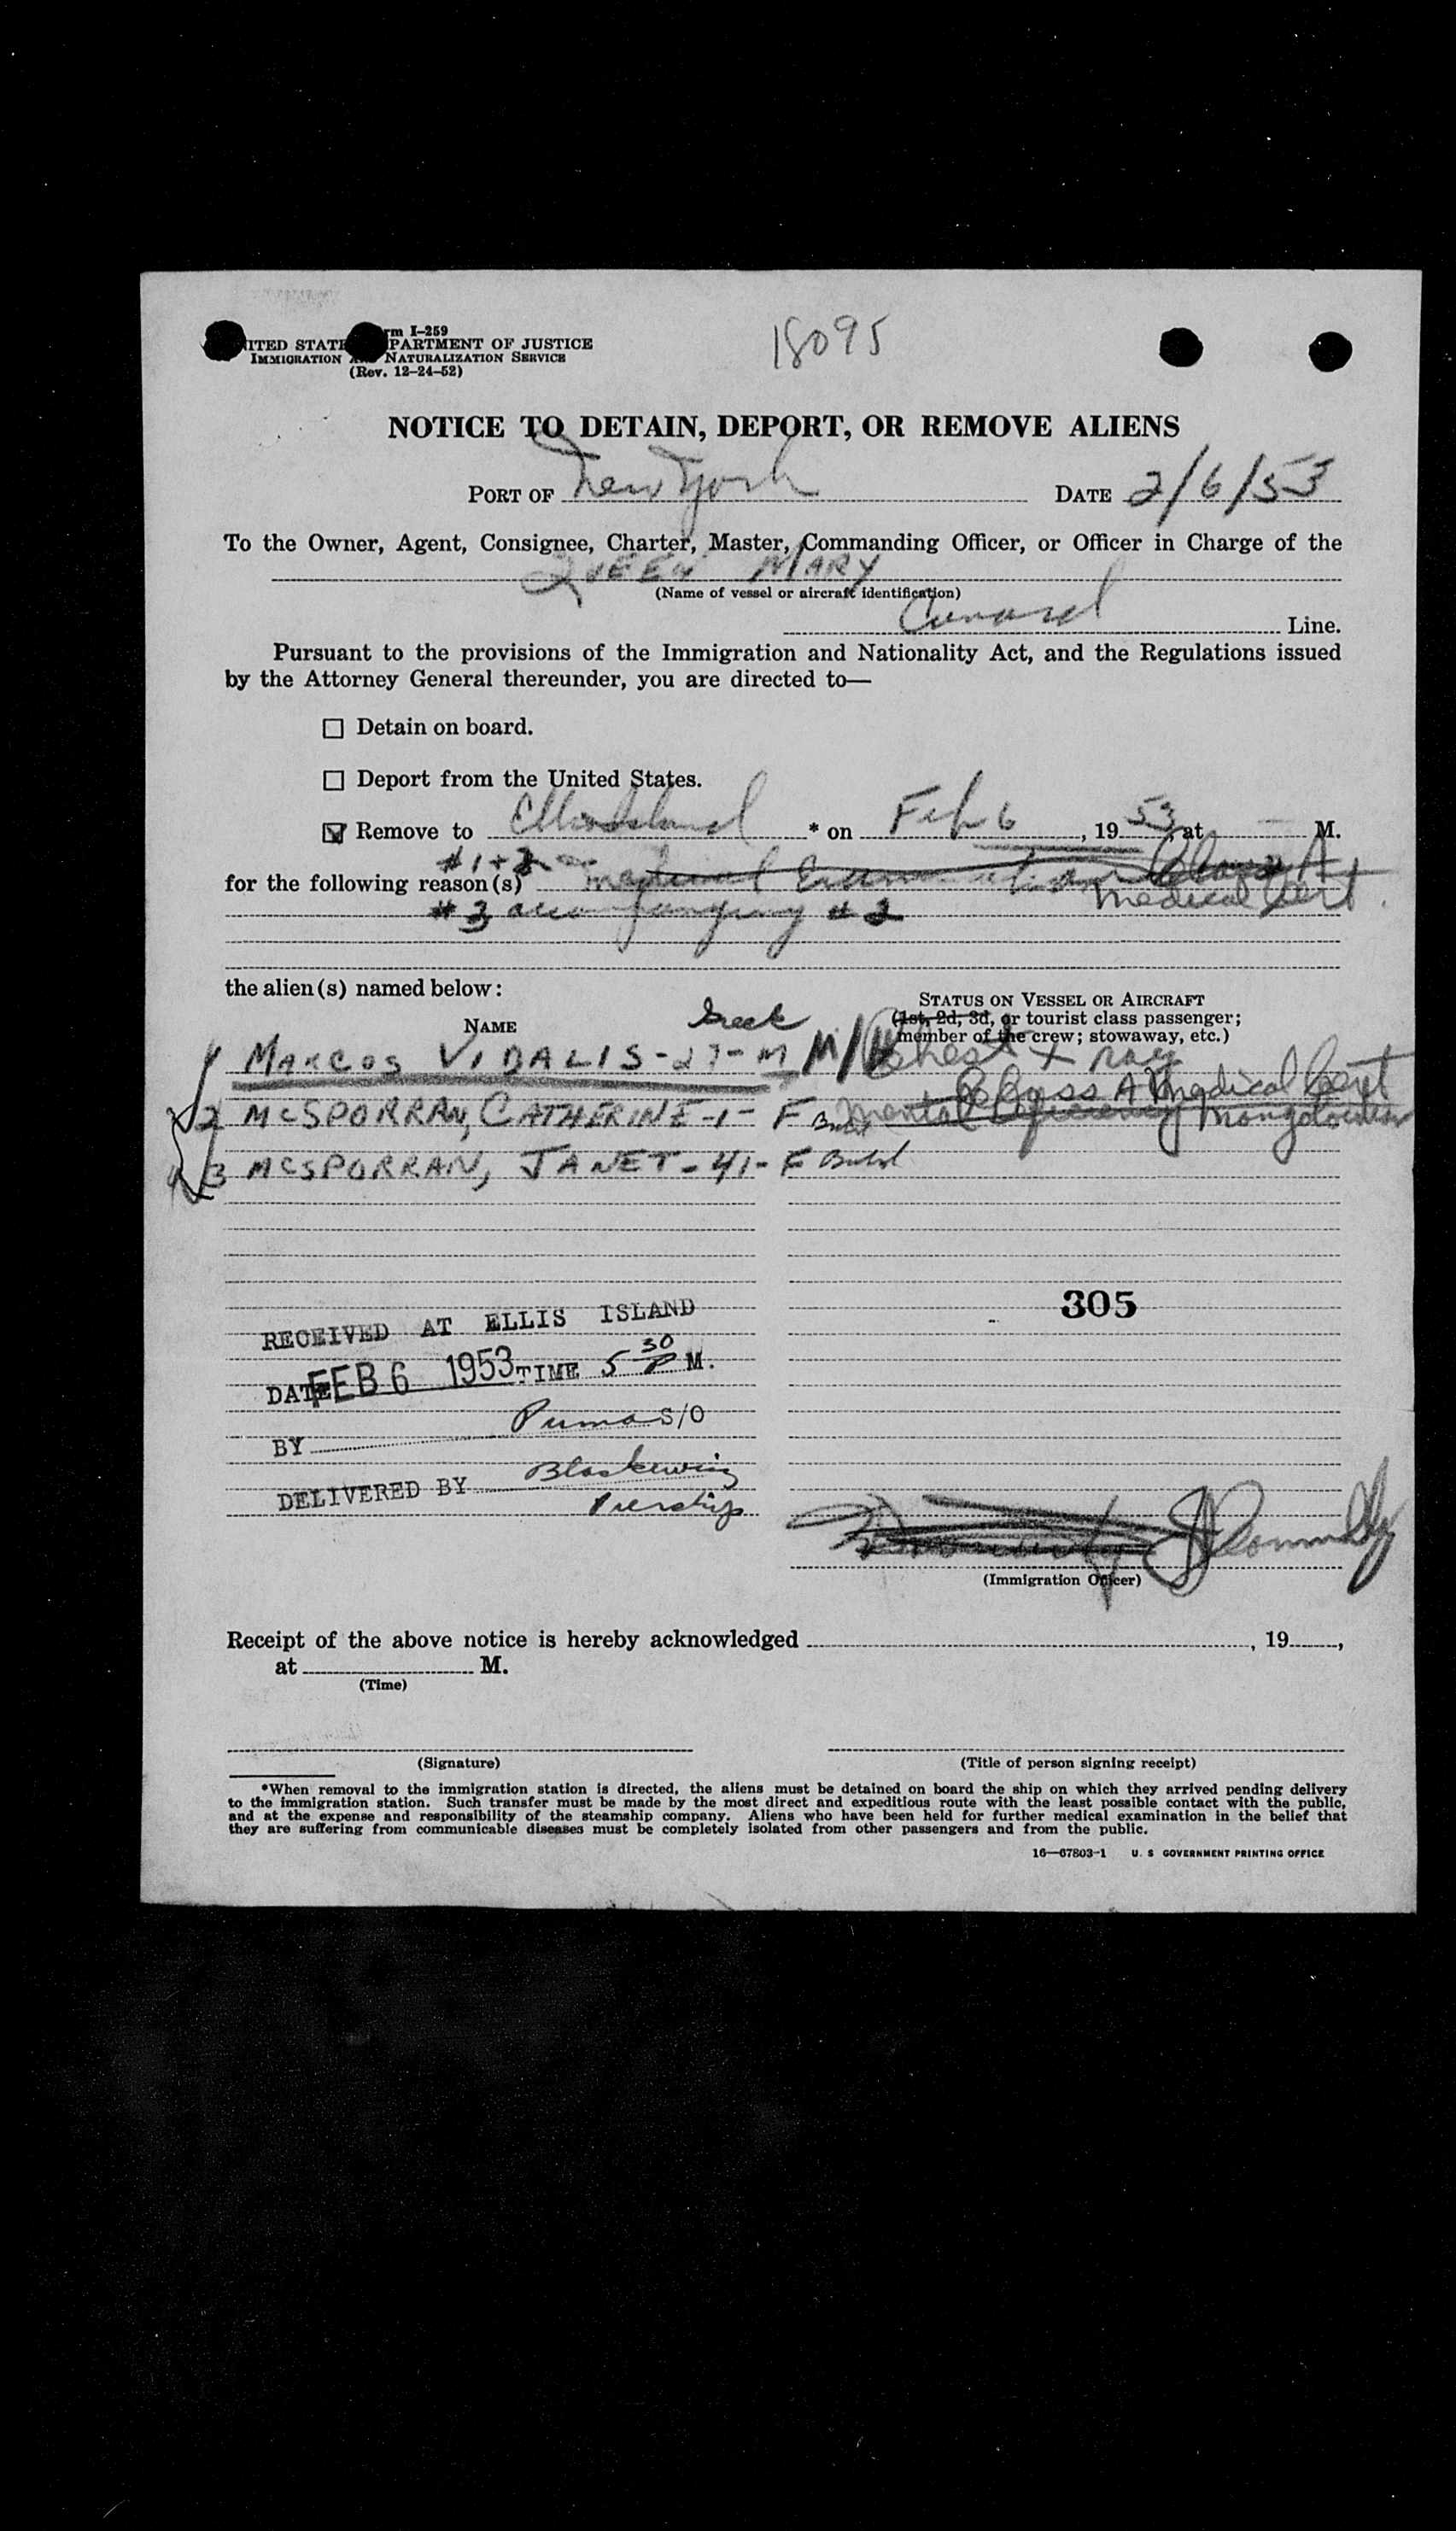 rm I-259
ITED STATE PARTMENT OF JUSTICE
IMMIGRATION NATURALIZATION SERVICE
(Rev. 12-24-52)
18095
NOTICE TO DETAIN, DEPORT, OR REMOVE ALIENS
PORT OF New York DATE 2/6/53
To the Owner, Agent, Consignee, Charter, Master, Commanding Officer, or Officer in Charge of the
QUEEN MARY
(Name of vessel or aircraft identification)
Cunard Line.
Pursuant to the provisions of the Immigration and Nationality Act, and the Regulations issued
by the Attorney General thereunder, you are directed to—
☐ Detain on board.
☐ Deport from the United States.
☑ Remove to Ellis Island * on Feb 6, 1953, at — M.
#1+2
for the following reason(s) Medical Examination Class A
Medical Cert.
#3 accompanying #2
the alien(s) named below:
NAME
Greek
STATUS ON VESSEL OR AIRCRAFT
(1st, 2d, 3d, or tourist class passenger;
member of the crew; stowaway, etc.)
1 MARCOS VIDALIS-27-M M/ Chest X ray
Class A Medical Cert
2 MCSPORRAN, CATHERINE-1- F Mental Deficiency Mongoloism
3 MCSPORRAN, JANET-41-F
305
RECEIVED AT ELLIS ISLAND
DATE FEB 6 1953 TIME 5 30 P M.
BY Puma S/O
DELIVERED BY
(Immigration Officer)
Receipt of the above notice is hereby acknowledged , 19 ,
at M.
(Time)
(Signature)
(Title of person signing receipt)
*When removal to the immigration station is directed, the aliens must be detained on board the ship on which they arrived pending delivery
to the immigration station. Such transfer must be made by the most direct and expeditious route with the least possible contact with the public,
and at the expense and responsibility of the steamship company. Aliens who have been held for further medical examination in the belief that
they are suffering from communicable diseases must be completely isolated from other passengers and from the public.
16—67803-1 U. S GOVERNMENT PRINTING OFFICE